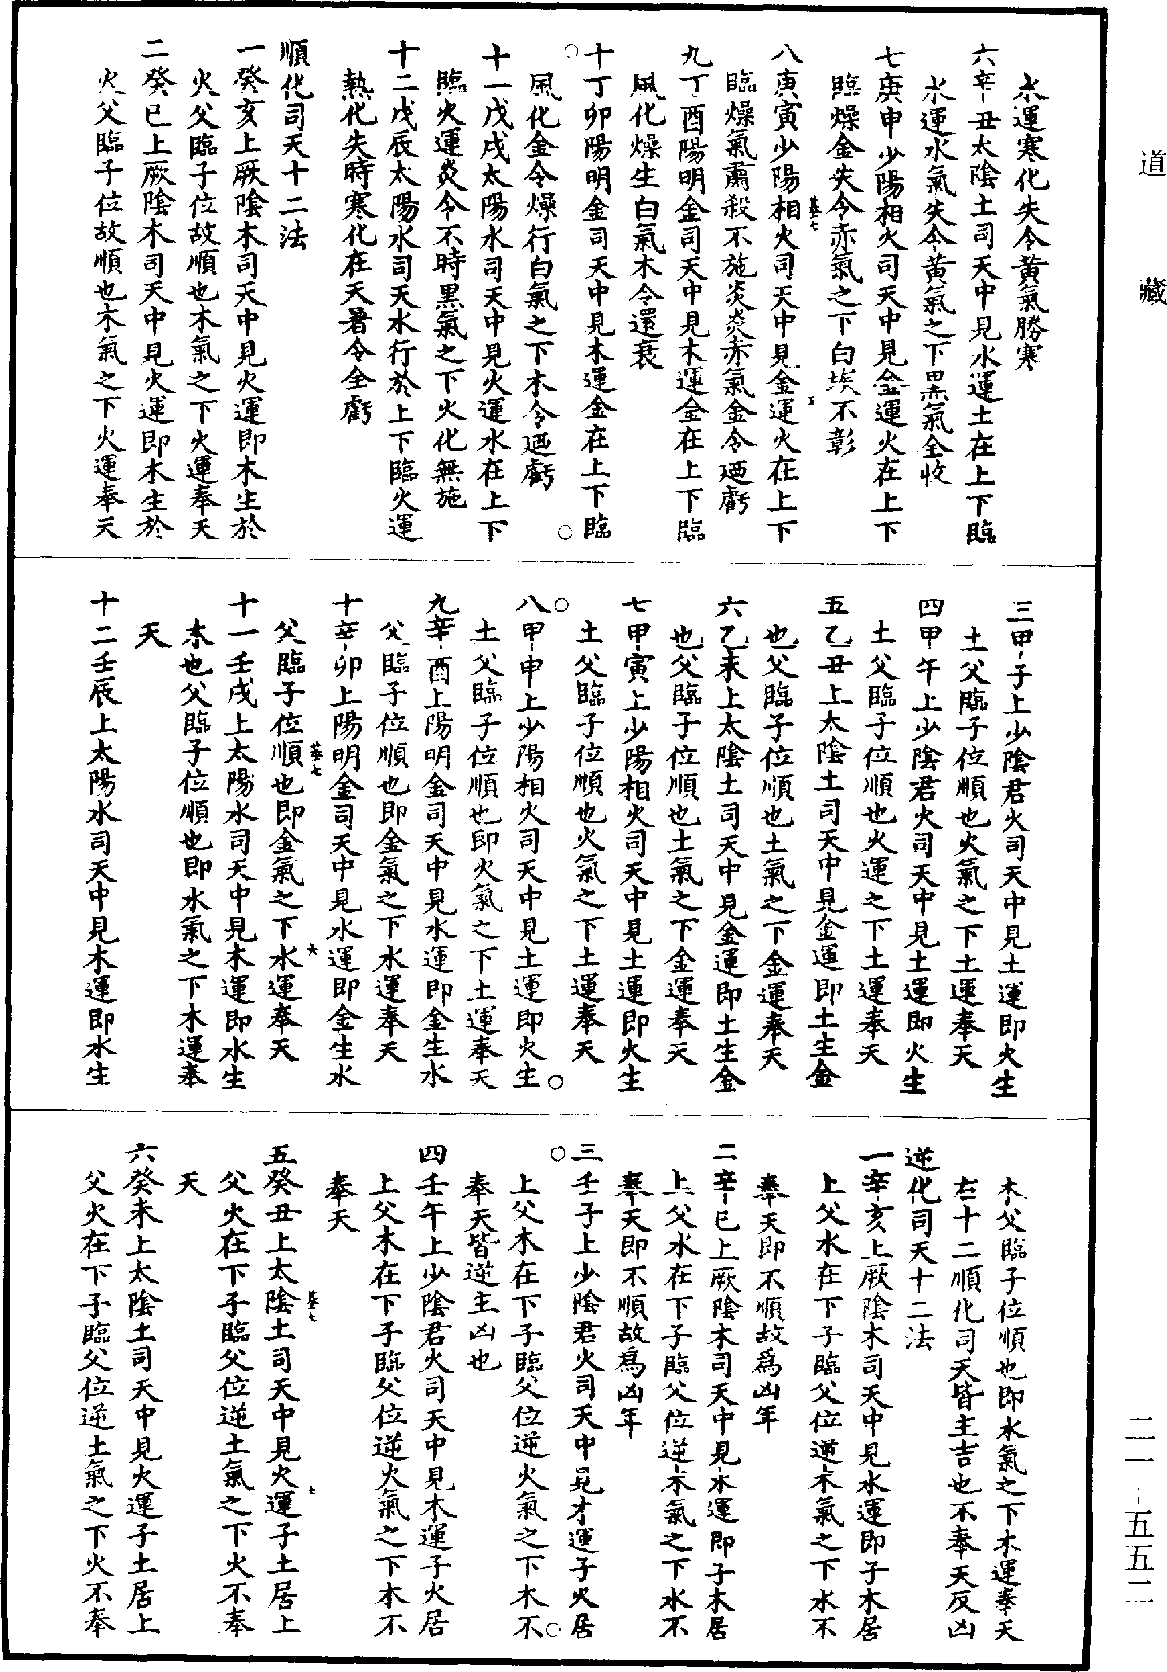 水運寒化失令黃氣勝寒
六辛丑太陰土司天中見水運土在上下臨
水運水氣失令黃氣之下黑氣全收
七庚申少陽相火司天中見金運火在上下
臨燥金失令赤氣之下白埃不彰
八庚寅少陽相火司天中見金運火在上下
臨燥氣肅殺不施炎炎赤氣金令迺虧
九丁酉陽明金司天中見木運金在上下臨
風化燥生白氣木令還衰
十丁卯陽明金司天中見木運金在上下臨
風化金令燥行白氣之下木令迺虧
十一戊戌太陽水司天中見火運水在上下
臨火運炎令不時黑氣之下火化無施
十二戊辰太陽水司天水行於上下臨火運
熱化失時寒化在天暑令全虧
順化司天十二法
一癸亥上厥陰木司天中見火運即木生於
火父臨子位故順也木氣之下火運奉天
二癸巳上厥陰木司天中見火運即木生於
火父臨子位故順也木氣之下火運奉天
三甲子上少陰君火司天中見土運即火生
土父臨子位順也火氣之下土運奉天
四甲午上少陰君火司天中見土運即火生
土父臨子位順也火運之下土運奉天
五乙丑上太陰土司天中見金運即土生金
也父臨子位順也土氣之下金運奉天
六乙未上太陰土司天中見金運即土生金
也父臨子位順也土氣之下金運奉天
七甲寅上少陽相火司天中見土運即火生
土父臨子位順也火氣之下土運奉天
八甲申上少陽相火司天中見土運即火生
土父臨子位順也即火氣之下土運奉天
九辛酉上陽明金司天中見水運即金生水
父臨子位順也即金氣之下水運奉天
十辛卯上陽明金司天中見水運即金生水
父臨子位順也即金氣之下水運奉天
十一壬戌上太陽水司天中見木運即水生
木也父臨子位順也即水氣之下木運奉
天
十二壬辰上太陽水司天中見木運即水生
木父臨子位順也即水氣之下木運奉天
右十二順化司天皆主吉也不奉天反凶
逆化司天十二法
一辛亥上厥陰木司天中見水運即子木居
上父水在下子臨父位逆木氣之下水不
奉天即不順故爲凶年
二辛巳上厥陰木司天中見水運即子木居
上父水在下子臨父位逆木氣之下水不
奉天即不順故爲凶年
三壬子上少陰君火司天中見木運子火居
上父木在下子臨父位逆火氣之下木不
奉天皆逆主凶也
四壬午上少陰君火司天中見木運子火居
上父木在下子臨父位逆火氣之下木不
奉天
五癸丑上太陰土司天中見火運子土居上
父火在下子臨父位逆土氣之下火不奉
天
六癸未上太陰土司天中見火運子土居上
父火在下子臨父位逆土氣之下火不奉
道藏
二一-五五二